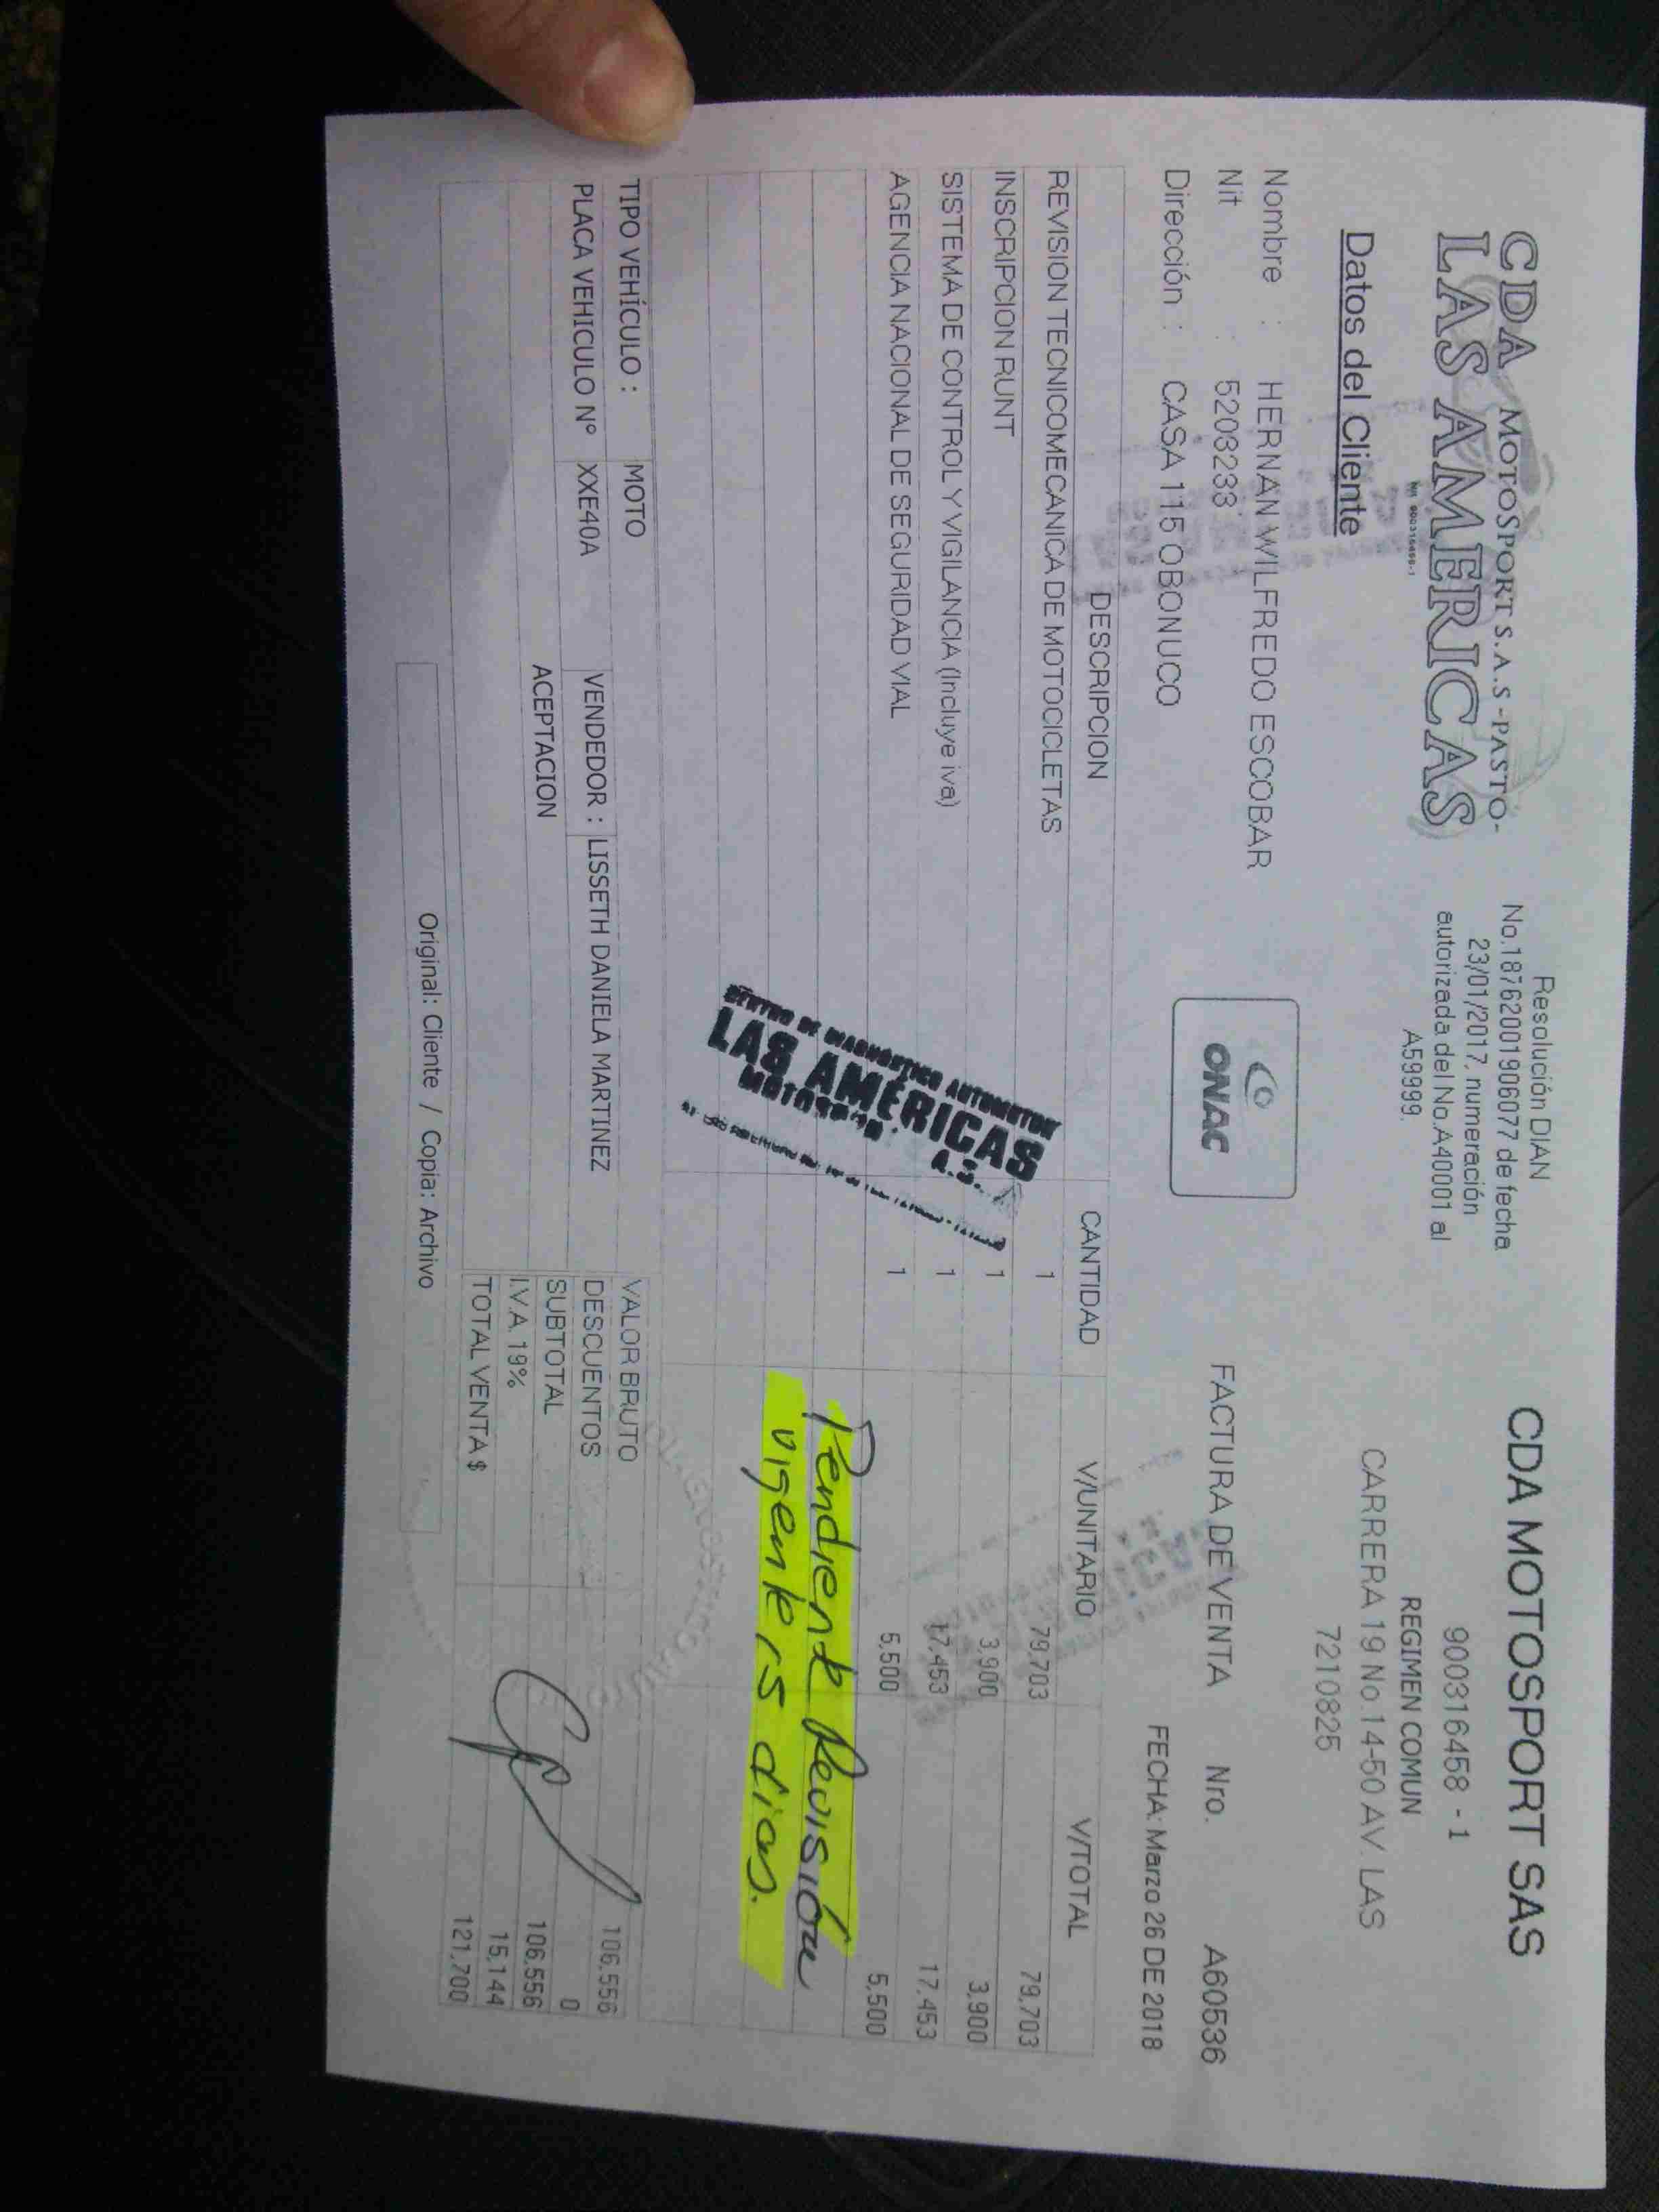 CDA MOTOSPORT S.A.S -PASTO-
LAS AMERICAS
Nit 900316458-1
Resolución DIAN
No.18762001906077 de fecha
23/01/2017, numeración
autorizada del No.A40001 al
A59999.
CDA MOTOSPORT SAS
900316458 - 1
REGIMEN COMUN
CARRERA 19 No 14-50 AV. LAS
7210825
Datos del Cliente
Nombre : HERNAN WILFREDO ESCOBAR
Nit : 5208233
Dirección : CASA 115 OBONUCO
ONAC
FACTURA DE VENTA Nro. A60536
FECHA: Marzo 26 DE 2018
DESCRIPCION CANTIDAD V/UNITARIO V/TOTAL
REVISION TECNICOMECANICA DE MOTOCICLETAS 1 79,703 79,703
INSCRIPCION RUNT 1 3,900 3,900
SISTEMA DE CONTROL Y VIGILANCIA (Incluye iva) 1 17,453 17,453
AGENCIA NACIONAL DE SEGURIDAD VIAL 1 5,500 5,500
CENTRO DE DIAGNOSTICO AUTOMOTOR
LAS AMÉRICAS
Pendiente Revisión
vigente 15 dias.
TIPO VEHÍCULO : MOTO
PLACA VEHICULO Nº XXE40A
VENDEDOR : LISSETH DANIELA MARTINEZ
ACEPTACION
VALOR BRUTO 106,556
DESCUENTOS 0
SUBTOTAL 106,556
I.V.A. 19% 15,144
TOTAL VENTA $ 121,700
Original: Cliente / Copia: Archivo